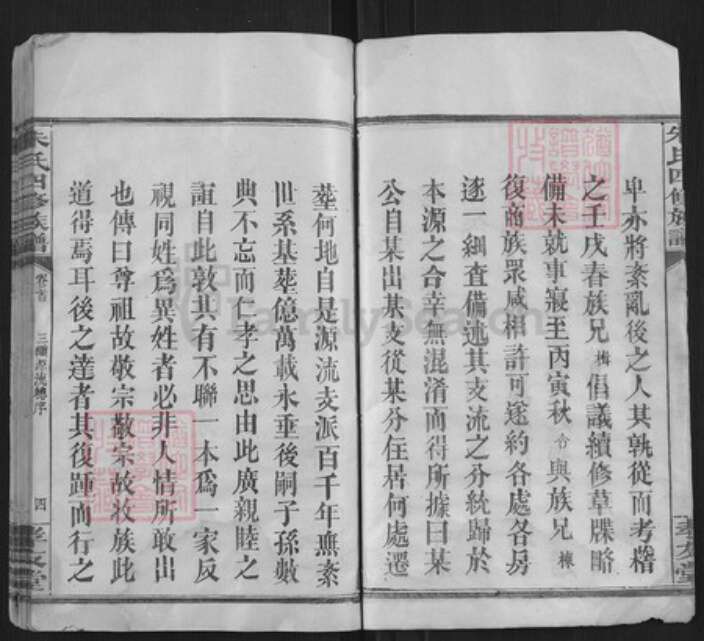 朱氏四修族譜
孝友堂
卑亦將紊亂後之人其孰從而考稽
之壬戌春族兄楫倡議續修草牒略
備未就事寢至丙寅秋㑹與族兄棟
復商族眾咸相許可遂約各處各房
逐一細查備述其支流之分統歸於
本源之合幸無混淆而得所據曰某
公自某出某支從某分住居何處遷
塟何地自是源流支派百千年無紊
世系基塟億萬載永垂後嗣子孫數
典不忘而仁孝之思由此廣親睦之
誼自此敦其有不聯一本為一家反
視同姓為異姓者必非人情所敢出
也傳曰尊祖故敬宗敬宗故收族此
道得焉耳後之達者其復踵而行之
朱氏四修族譜
卷首
三修源流總序
四
孝友堂
FamilySearch